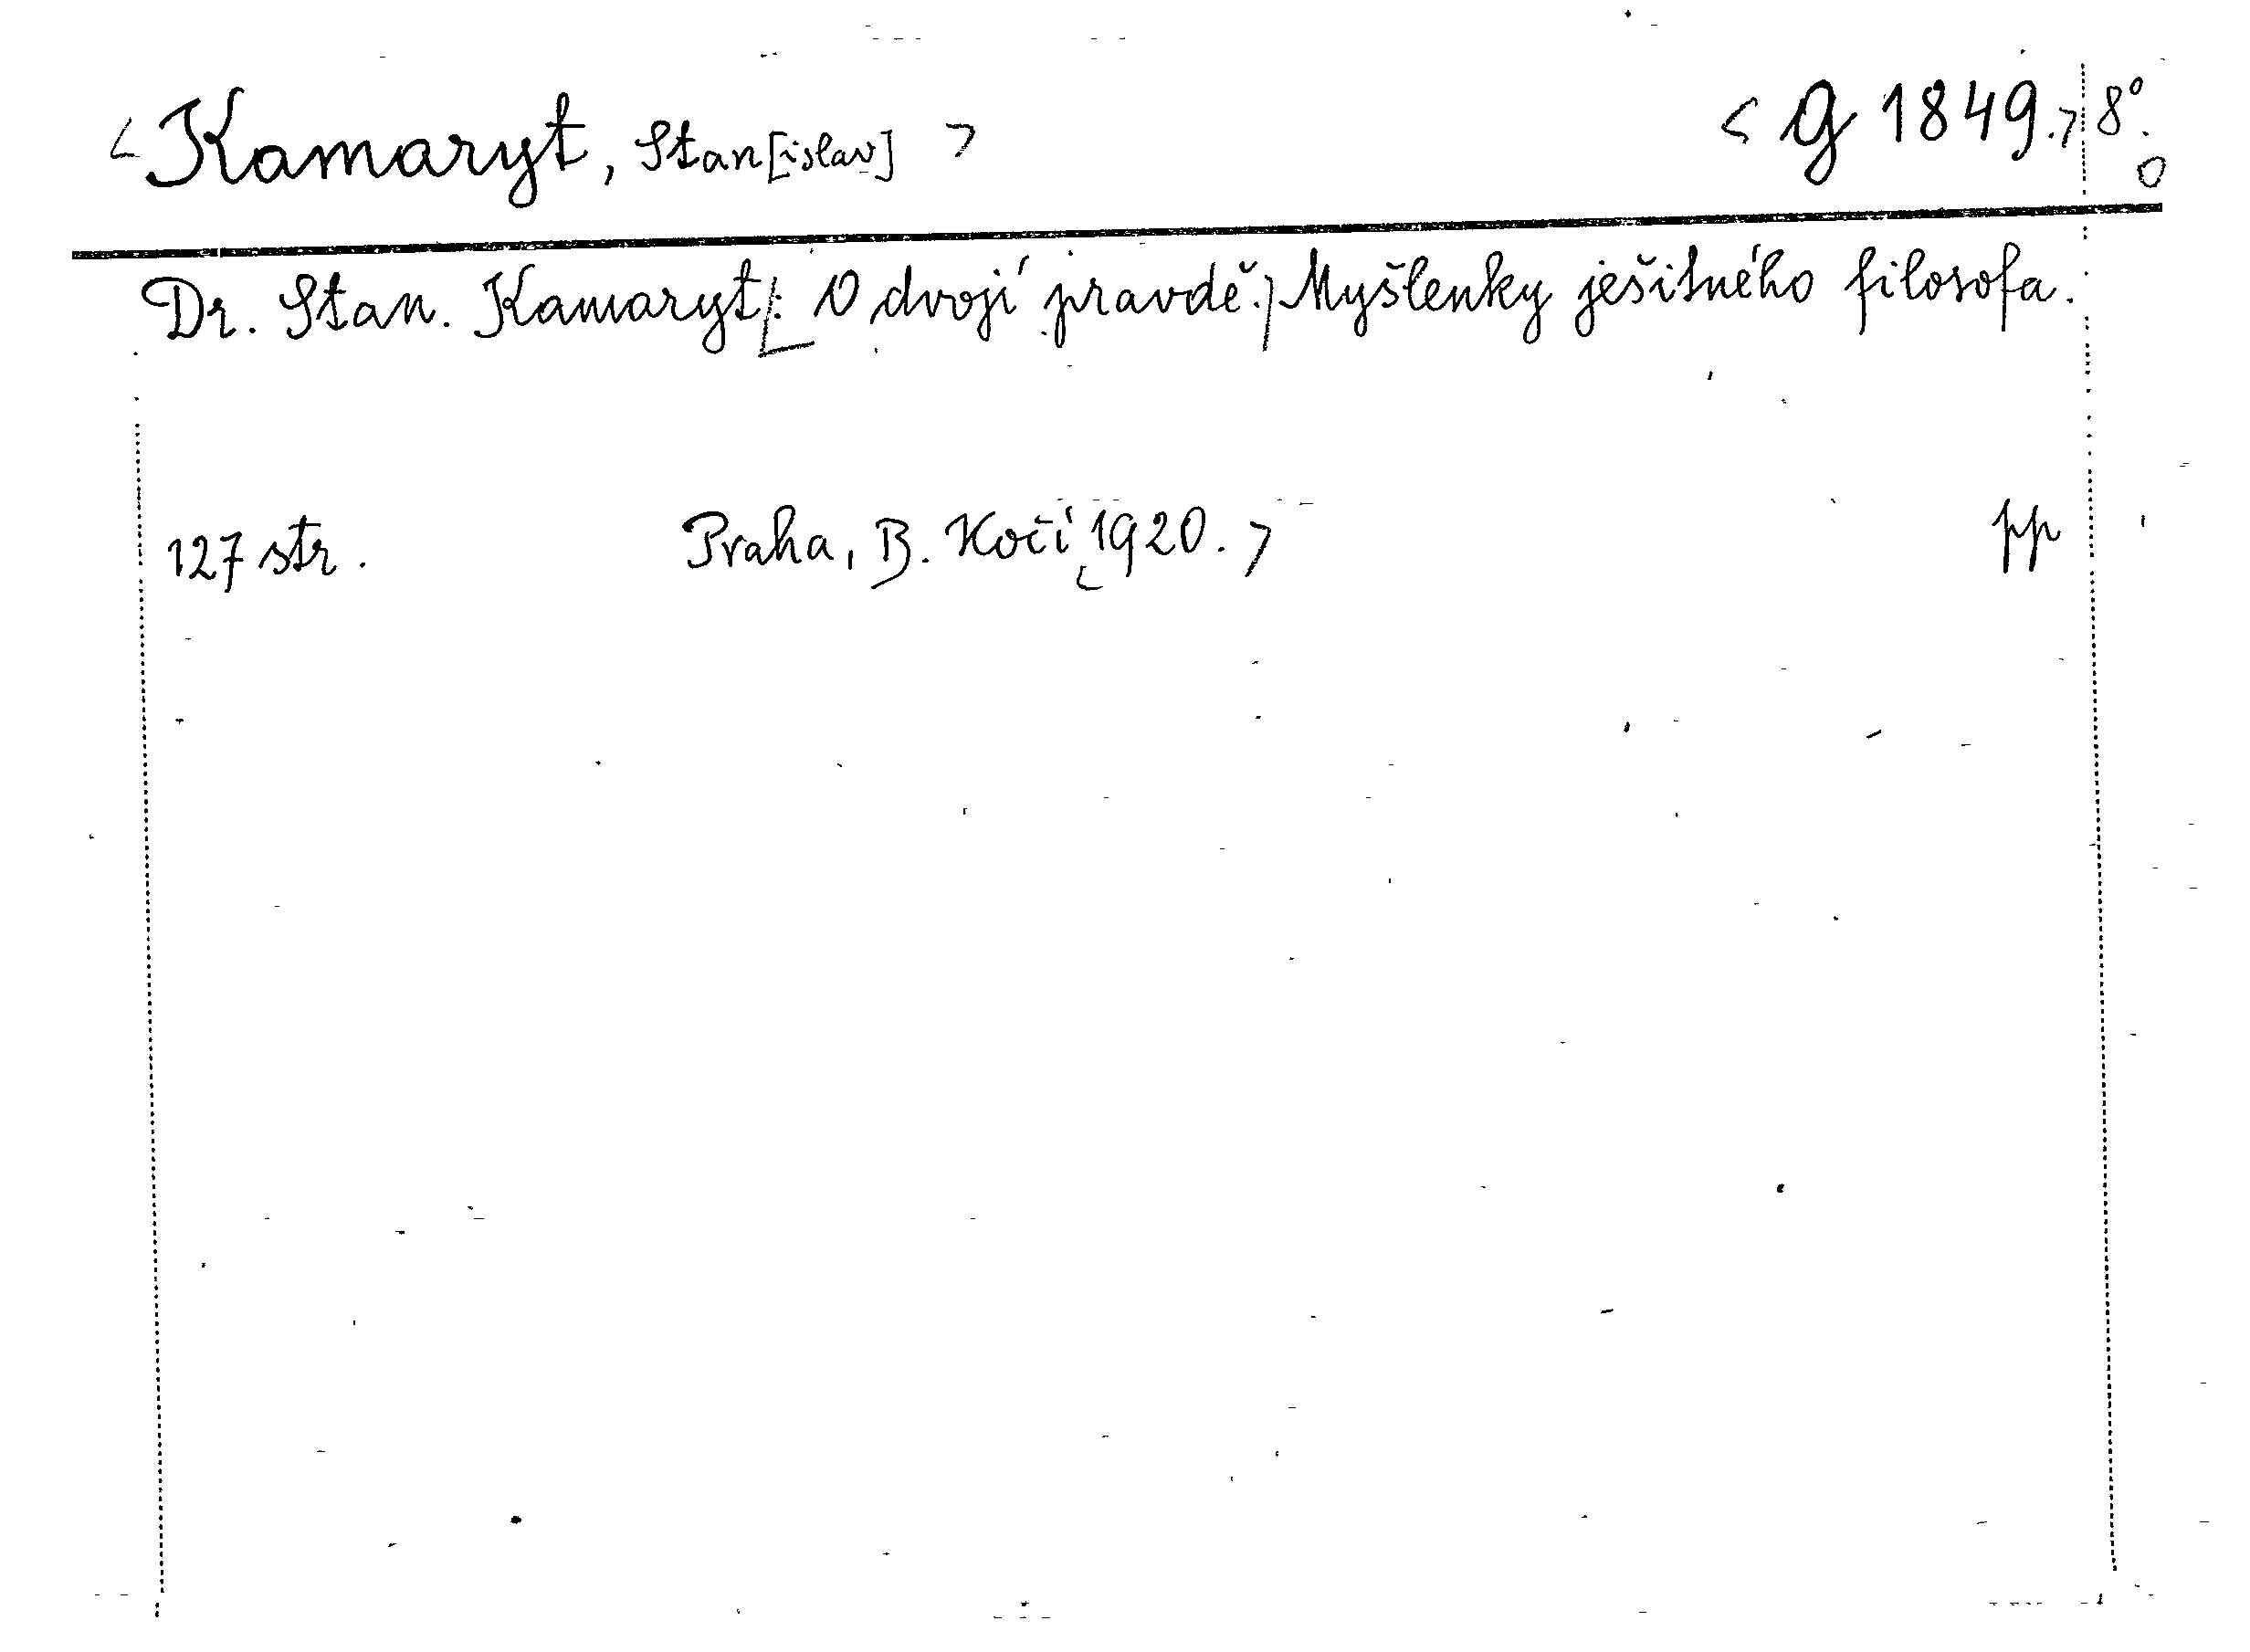 <Kamaryt, Stan[islav]> <G 1849.> 8°.
Dr. Stan. Kamaryt: O dvojí pravdě. Myšlenky ješitného filosofa.
127 str. Praha, B. Kočí 1920. pp